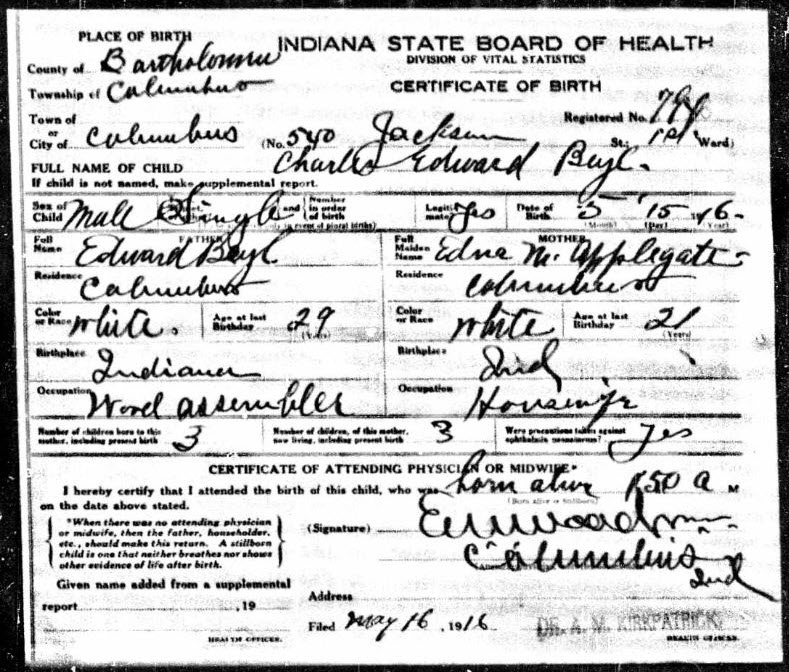 PLACE OF BIRTH
INDIANA STATE BOARD OF HEALTH
DIVISION OF VITAL STATISTICS
CERTIFICATE OF BIRTH
County of Bartholomew
Township of Columbus
Town of
or
City of Columbus (No. 540 Jackson St.; 1st Ward)
Registered No.
FULL NAME OF CHILD Charles Edward
If child is not named, make supplemental report.
Sex of Child Male Single and Number in order of birth Legitimate? Yes Date of Birth 5 15 1916
(Month) (Day) (Year)
FATHER
MOTHER
Full Name Edward
Full Maiden Name Edna M. Applegate
Residence Columbus
Residence Columbus
Color or Race White. Age at last Birthday 29 (Years)
Color or Race White Age at last Birthday 21 (Years)
Birthplace Indiana
Birthplace Ind
Occupation Wood assembler
Occupation Housewife
Number of children born to this mother, including present birth 3
Number of children, of this mother, now living, including present birth 3
Were precautions taken against ophthalmia neonatorum? Yes
CERTIFICATE OF ATTENDING PHYSICIAN OR MIDWIFE*
I hereby certify that I attended the birth of this child, who was born alive 50 a M
(Born alive or Stillborn)
on the date above stated.
*When there was no attending physician
or midwife, then the father, householder,
etc., should make this return. A stillborn
child is one that neither breathes nor shows
other evidence of life after birth.
(Signature)
Columbus
Ind
Given name added from a supplemental
report , 19
Address
Filed May 16, 1916
DR. A. M. KIRKPATRICK
HEALTH OFFICER.
HEALTH OFFICER.